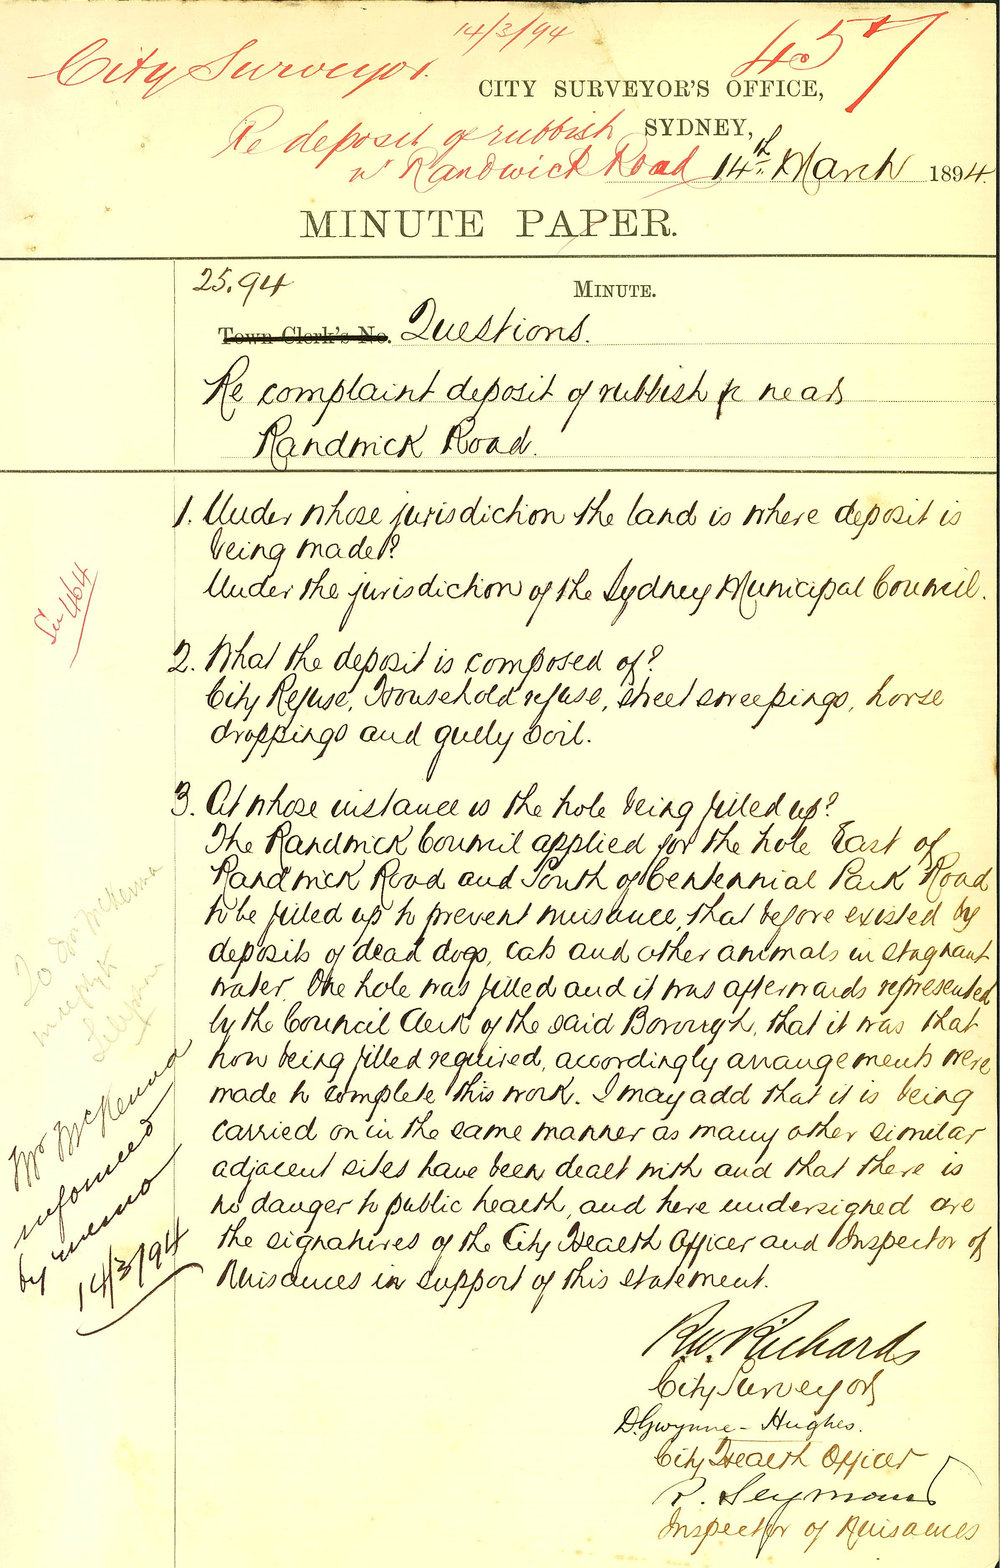 14/3/94
457
City Surveyor.
CITY SURVEYOR'S OFFICE,
Re deposit of rubbish
SYDNEY,
n' Randwick Road
14th March 1894.
MINUTE PAPER.
25.94
MINUTE.
Town Clerk's No. Questions.
Re complaint deposit of rubbish &c near
Randwick Road.
1. Under whose jurisdiction the land is where deposit is
being made?
Under the jurisdiction of the Sydney Municipal Council.
464
2. What the deposit is composed of?
City Refuse, Household refuse, street sweepings, horse
droppings and gully soil.
3. At whose instance is the hole being filled up?
The Randwick Council applied for the hole East of
Randwick Road and South of Centennial Park Road
to be filled up to prevent nuisance, that before existed by
deposits of dead dogs, cats and other animals in stagnant
water. One hole was filled and it was afterwards represented
by the Council Clerk of the said Borough, that it was that
now being filled required, accordingly arrangements were
made to complete this work. I may add that it is being
carried on in the same manner as many other similar
adjacent sites have been dealt with and that there is
no danger to public health, and here undersigned are
the signatures of the City Health Officer and Inspector of
Nuisances in support of this statement.
To Mr McKenna
Mr McKenna
informed
by memo
14/3/94
R.W. Richards
City Surveyor
D. Gwynne-Hughes.
City Health Officer
R. Seymour
Inspector of Nuisances